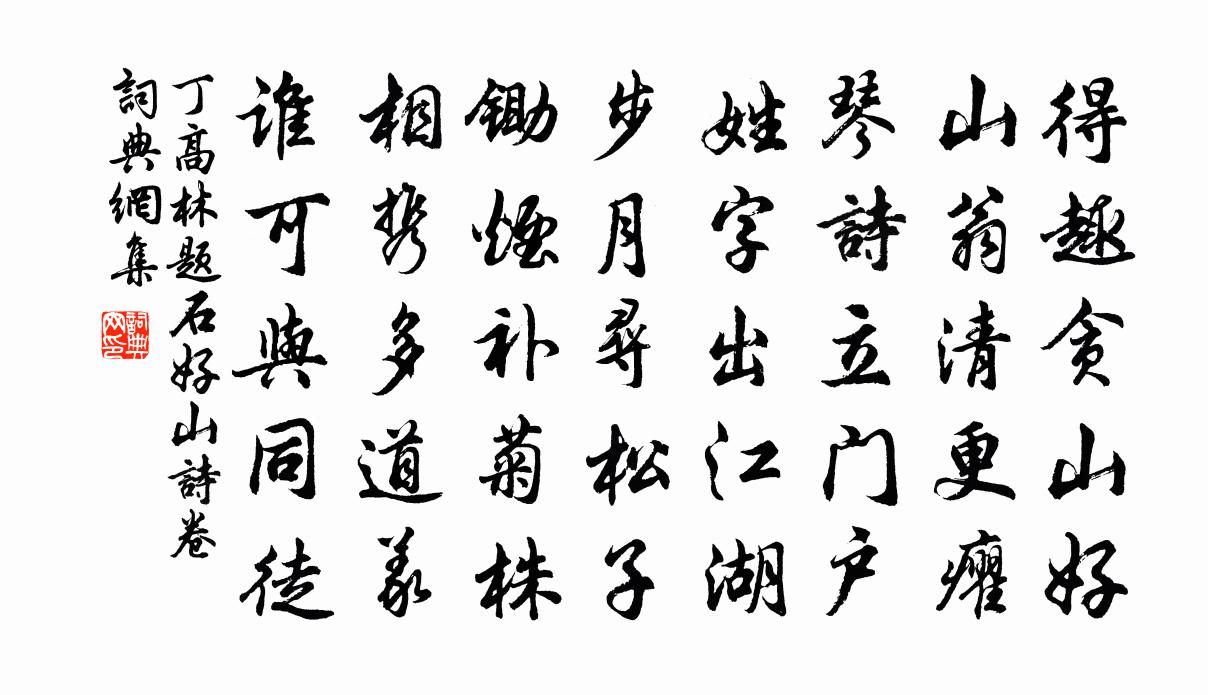 得趣贪山好
山翁清更癯
琴詩立门户
姓字出江湖
步月尋松子
锄煙补菊株
相携多道義
谁可與同徒
丁高林题石好山詩卷
詞典網集
詞典网印